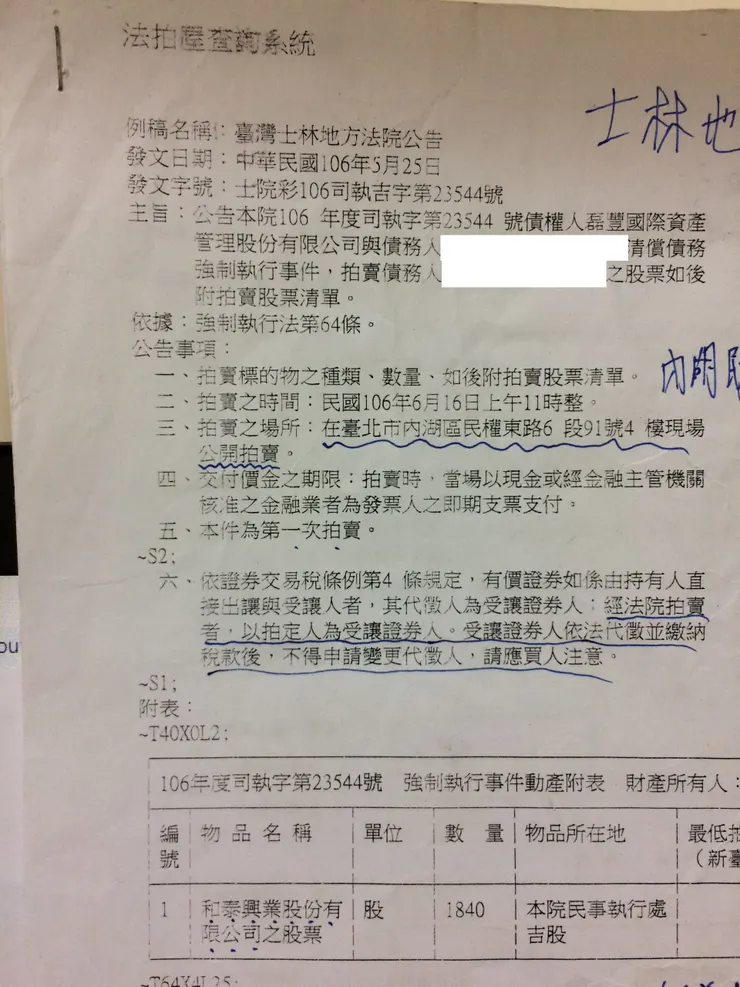 法拍屋查詢系統
士林地
例稿名稱：臺灣士林地方法院公告
發文日期：中華民國106年5月25日
發文字號：士院彩106司執吉字第23544號
主旨：公告本院106 年度司執字第23544 號債權人磊豐國際資產
管理股份有限公司與債務人 清償債務
強制執行事件，拍賣債務人 之股票如後
附拍賣股票清單。
依據：強制執行法第64條。
公告事項：
一、拍賣標的物之種類、數量、如後附拍賣股票清單。
內湖
二、拍賣之時間：民國106年6月16日上午11時整。
三、拍賣之場所：在臺北市內湖區民權東路6 段91號4 樓現場
公開拍賣。
四、交付價金之期限：拍賣時，當場以現金或經金融主管機關
核准之金融業者為發票人之即期支票支付。
五、本件為第一次拍賣。
~S2;
六、依證券交易稅條例第4 條規定，有價證券如係由持有人直
接出讓與受讓人者，其代徵人為受讓證券人；經法院拍賣
者，以拍定人為受讓證券人。受讓證券人依法代徵並繳納
稅款後，不得申請變更代徵人，請應買人注意。
~S1;
附表：
~T40X0L2;
106年度司執字第23544號 強制執行事件動產附表 財產所有人：
編號 物品名稱 單位 數量 物品所在地 最低
（新
1 和泰興業股份有 股 1840 本院民事執行處
限公司之股票 吉股
~T64X4L25;